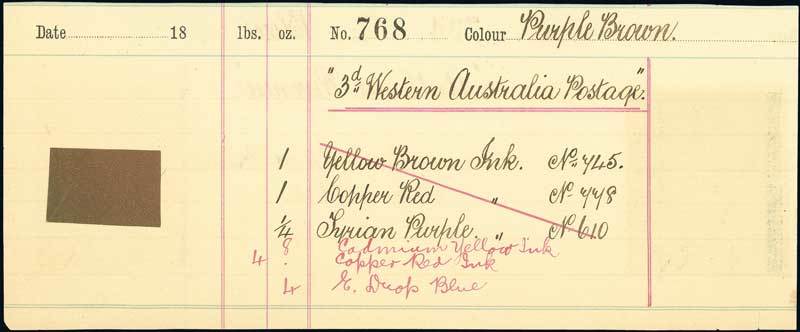 Date 18 lbs. oz. No. 768 Colour Purple Brown.
"3d Western Australia Postage".
1 Yellow Brown Ink. No. 745.
1 Copper Red " No. 778
1/4 Tyrian Purple. " No 610
8 Cadmium Yellow Ink
4 . Copper Red Ink
4 E. Drop Blue